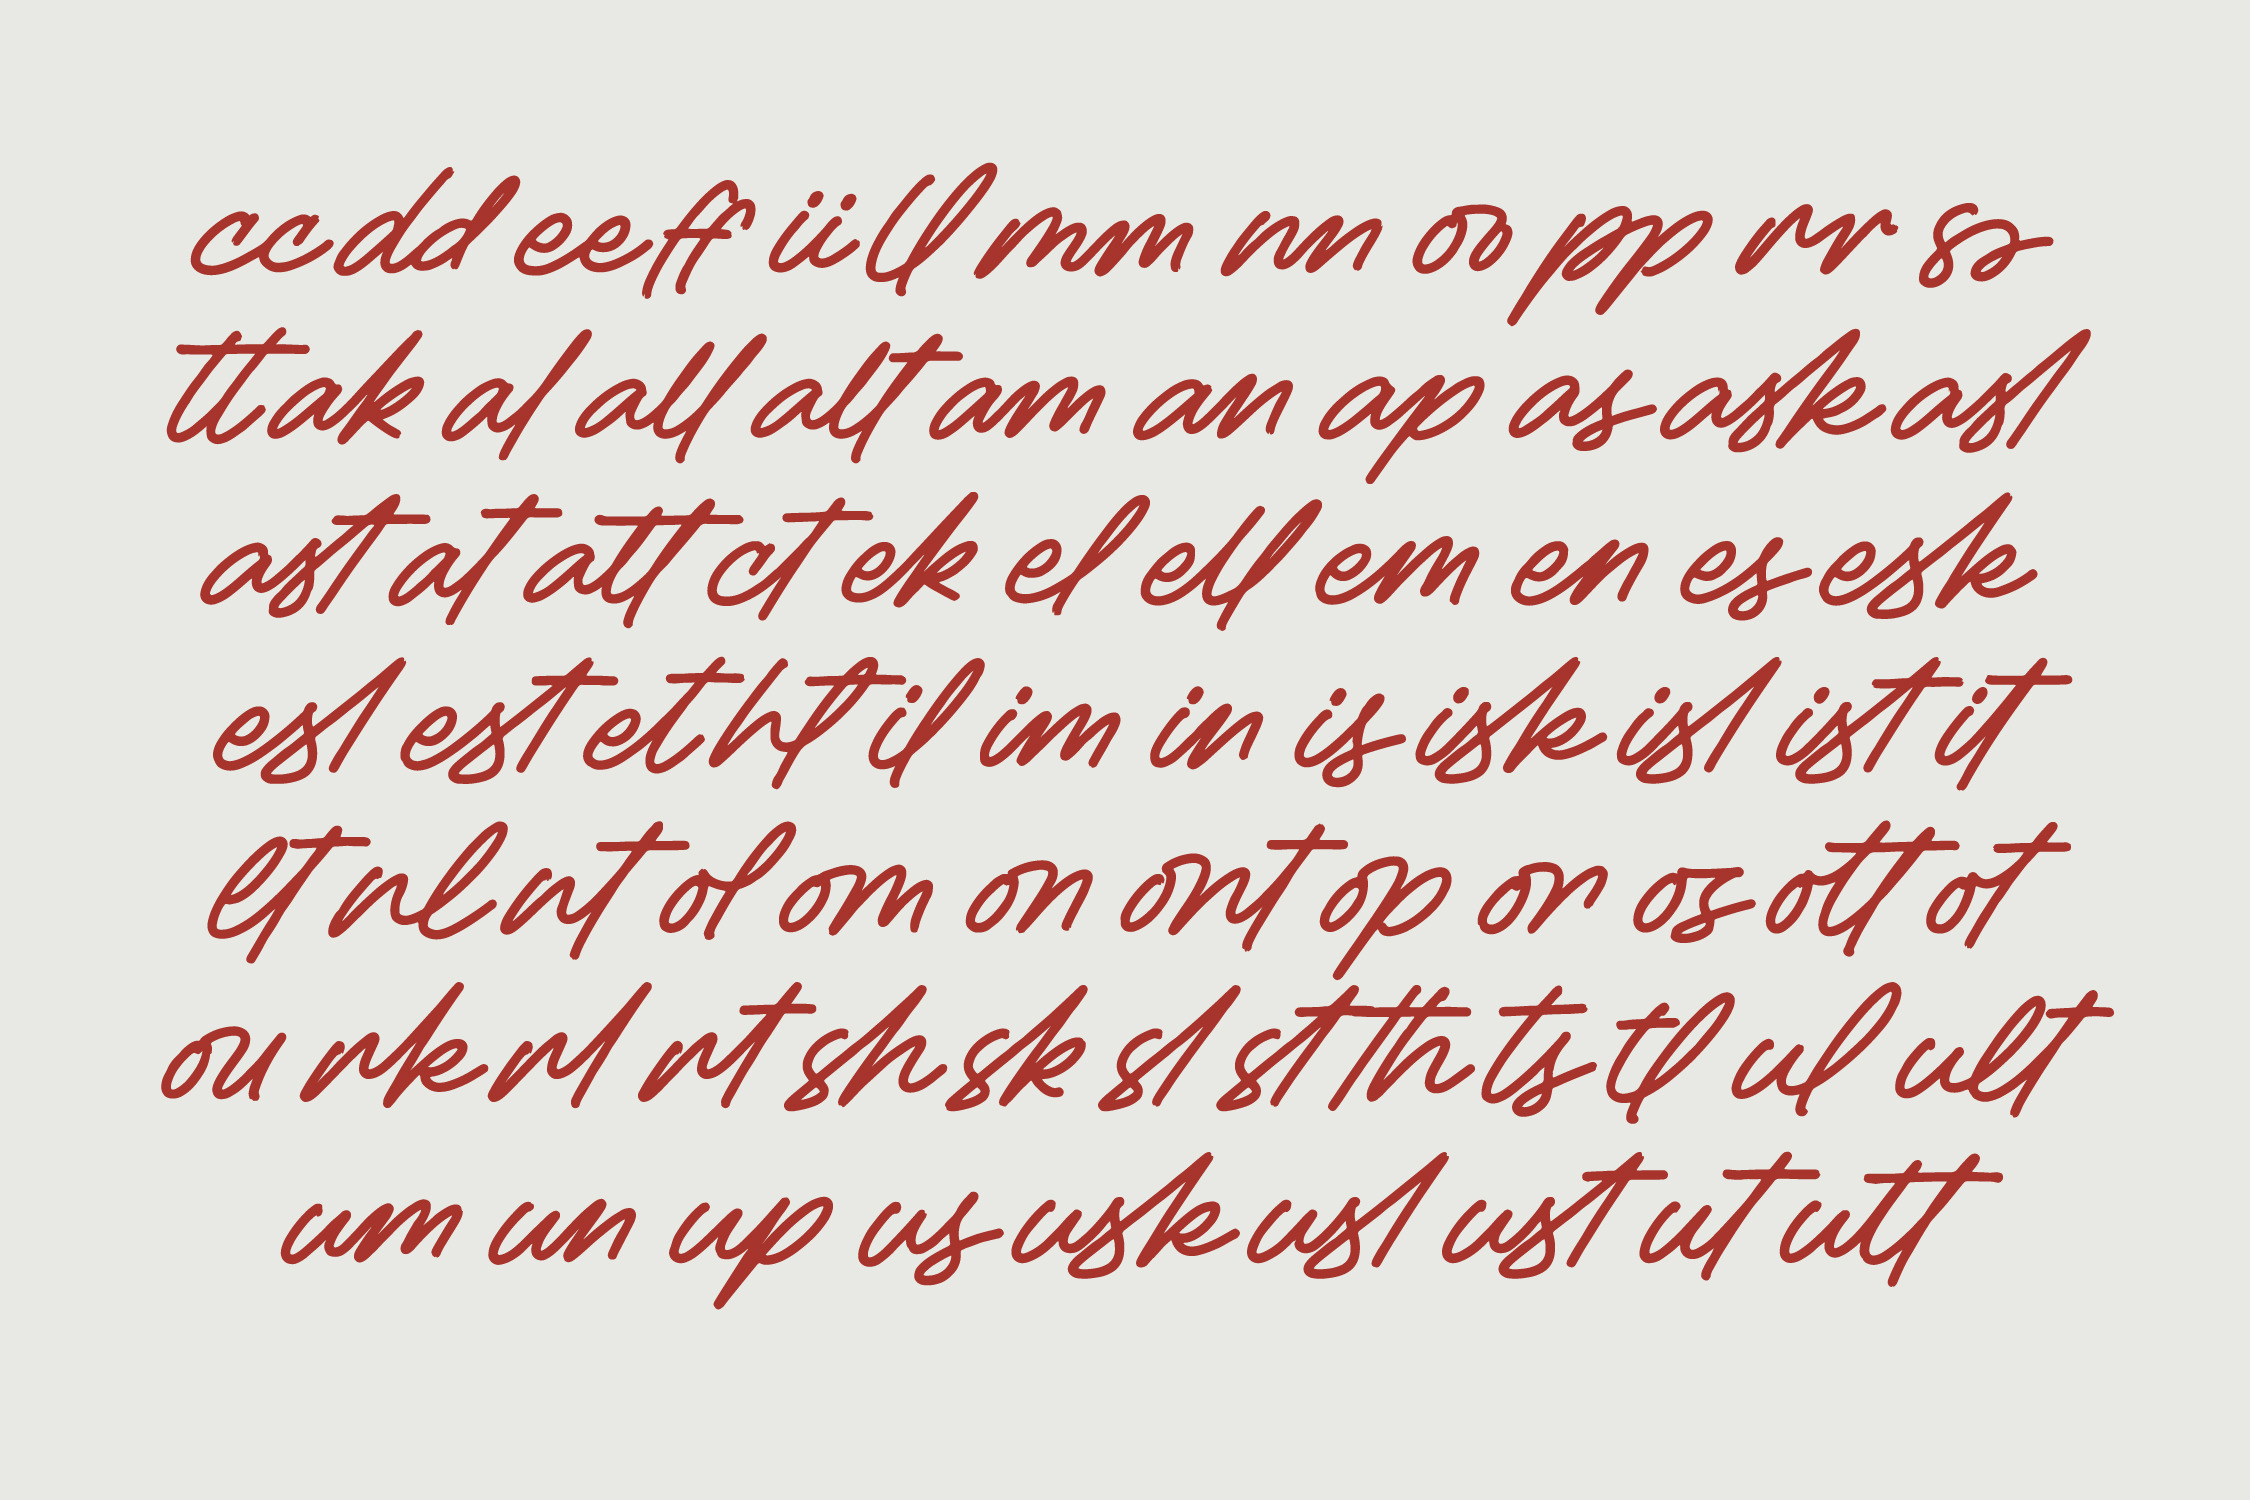 cc dd ee ff ii ll mm nn oo pp rr ss
tt ak al all alt am an ap as ask asl
ast at att ct ek el ell em en es esk
esl est et ht it il im in is isk isl ist it
lt nl nt ol om on ont op or os ott ot
ou rk rl rt sh sk sl st th ts tl ul ult
um un up us usk usl ust ut utt